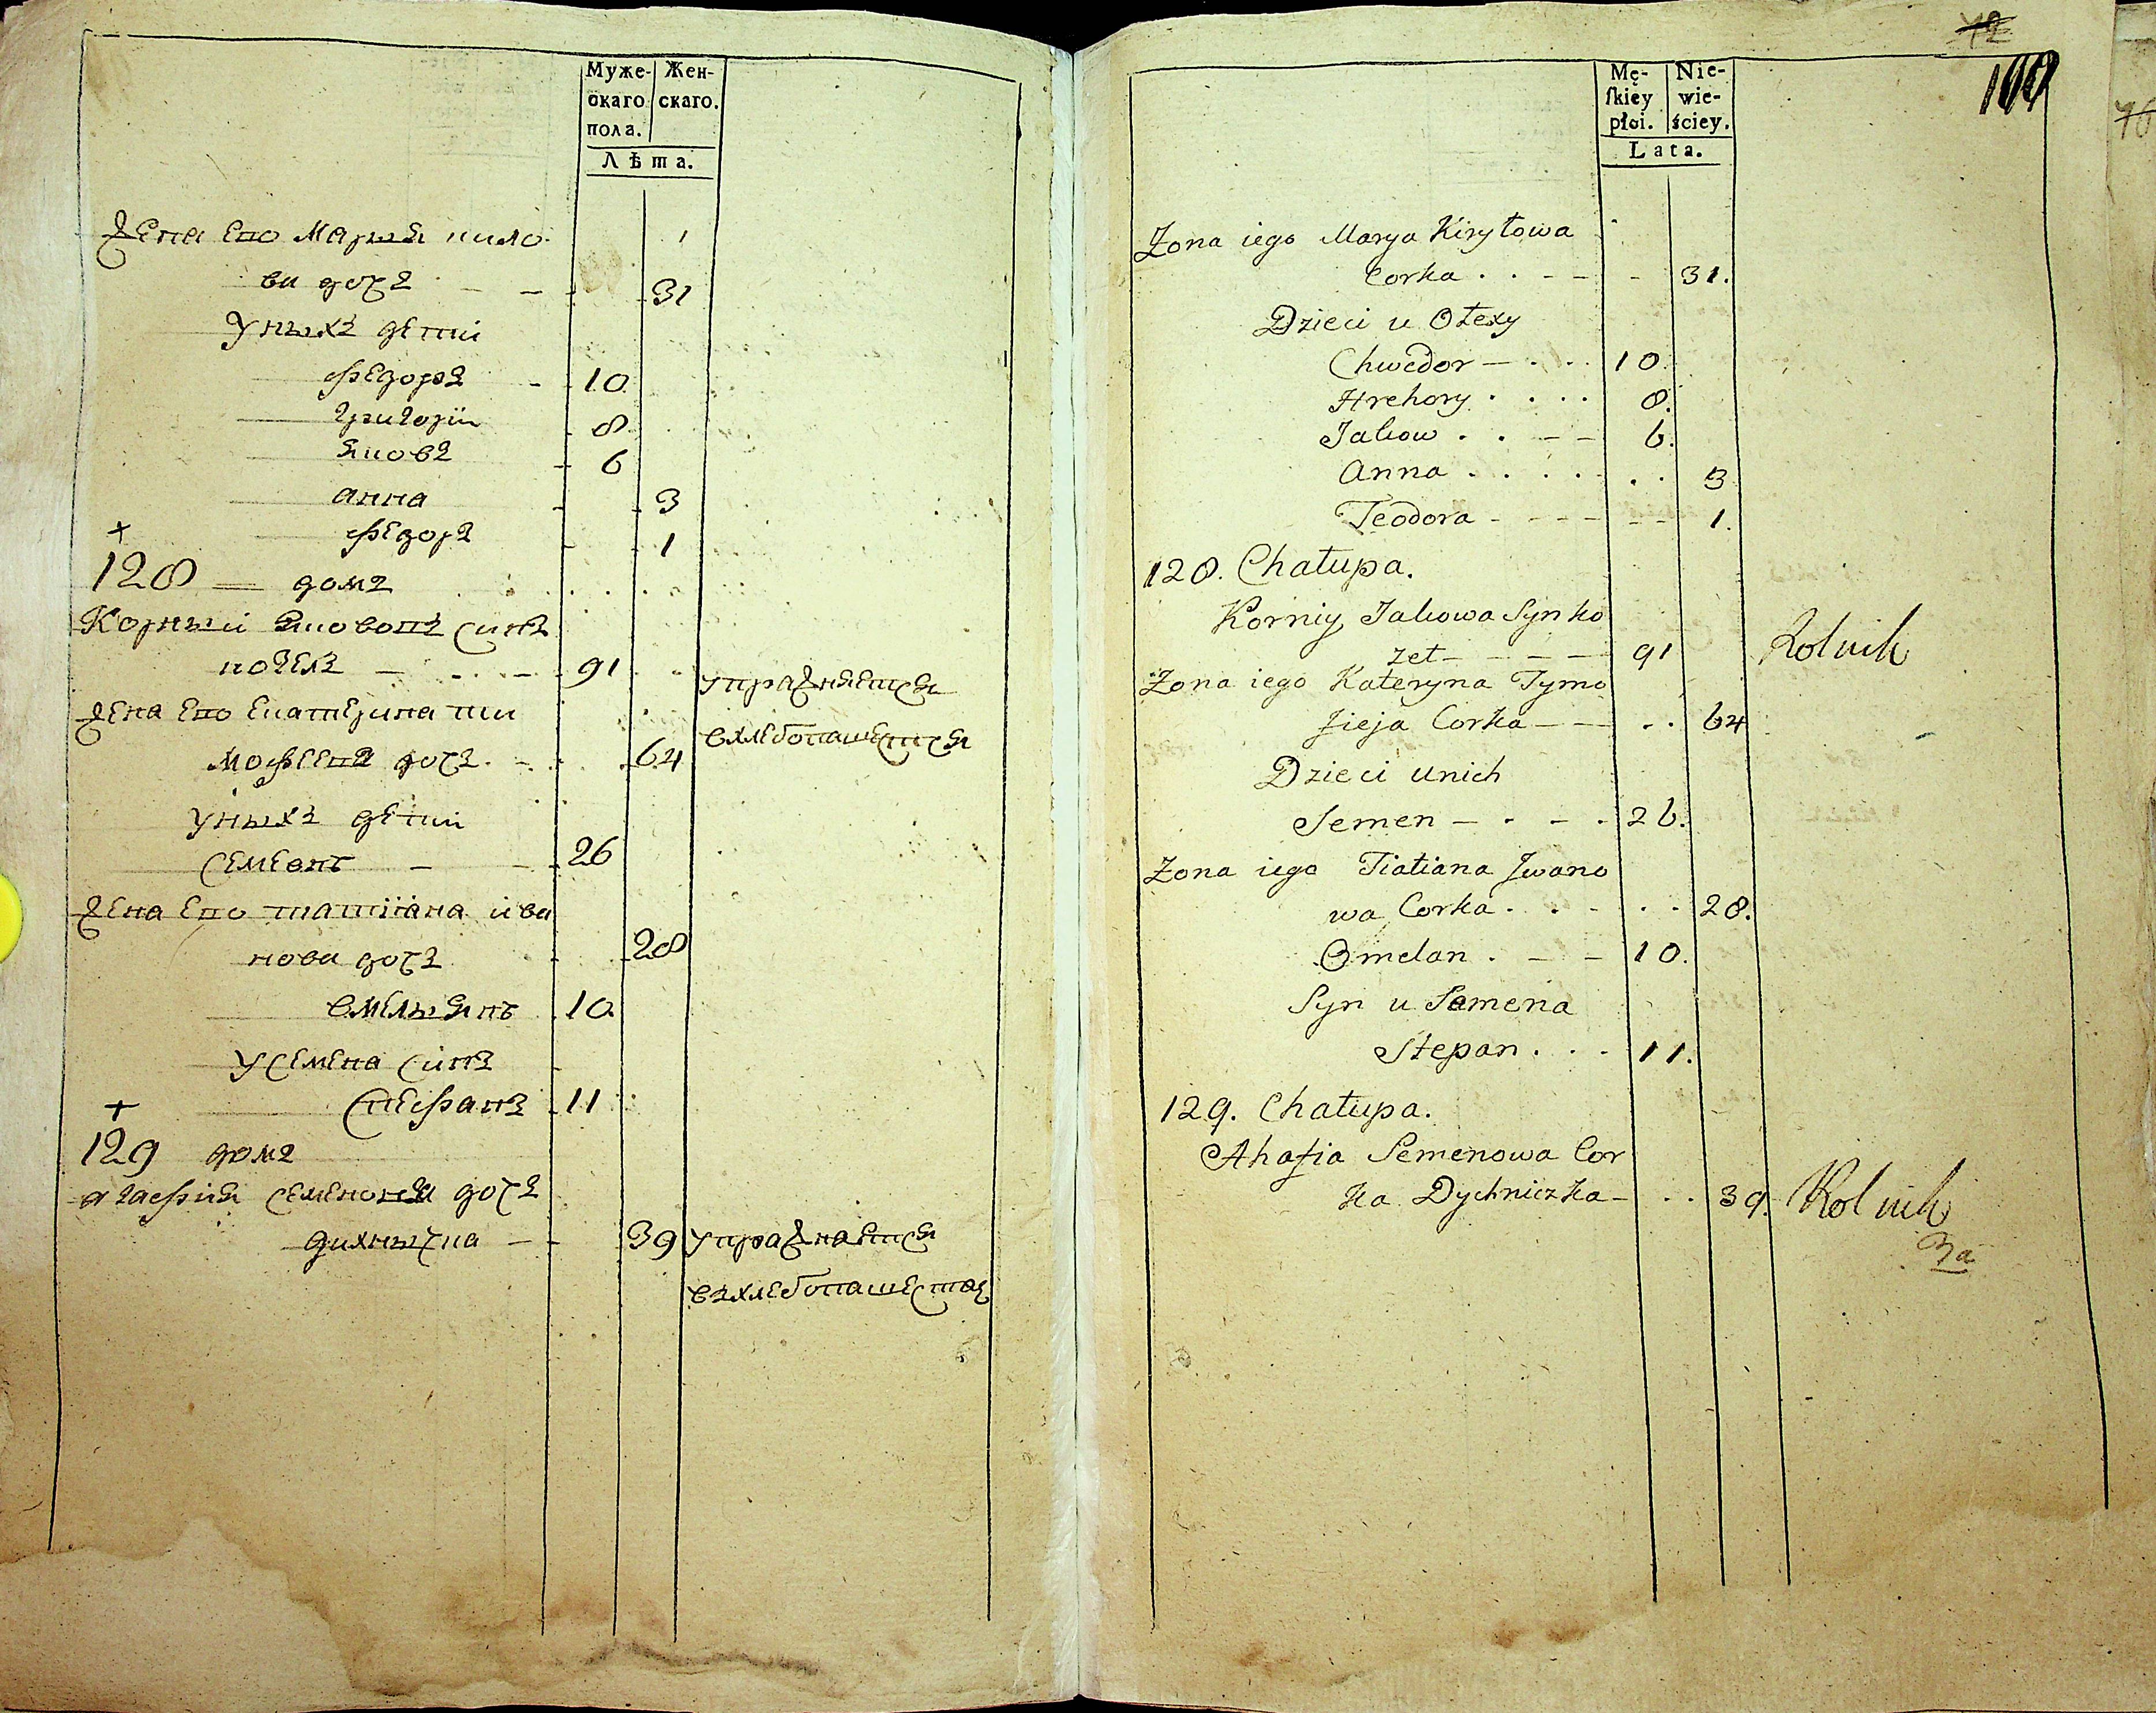 Муже-
скаго
пола.
Жен-
скаго.
Лѣта.
жена его Марья кило
ви дочъ 31
Уныхъ дети
Федоръ 10
григории 8
яковъ 6
анна 3
Федора 1
128 домъ
Корнѣй якововъ синъ
козелъ 91
упражняется
жена его екатерина ти
мофеева дочъ 64
вхлебопашестся
Уныхъ дети
Семенъ 26
жена его татiяна ива
нова дочъ 28
емельянъ 10
У Семена синъ
Стефанъ 11
129 домъ
агафия Семенова дочъ
дихнычка 39 упражнается
въхлебопашества
72
100
Mę-
ſkiey
płci.
Nie-
wie-
ściey.
Lata.
Zona iego Marya Kiryłowa
Corka 31.
Dzieci u Ołexy
Chwedor 10.
Hrehory 8.
Jakow 6.
Anna 3
Teodora 1.
128. Chałupa.
Korniy Jakowa Syn ko
zeł 91 Rolnik
Zona iego Kateryna Tymo
fieja Corka 64
Dzieci unich
Semen 26.
Zona iego Tiatiana Jwano
wa Corka 28.
Omelan 10.
Syn u Semena
Stepan 11.
129. Chałupa.
Ahafia Semenowa Cor
ka Dychniczka 39. Rolnik
За
76